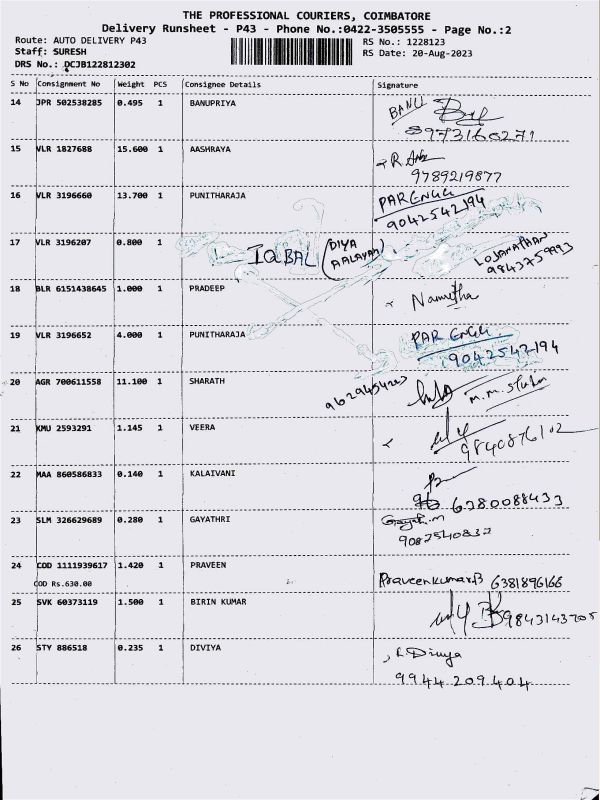 THE PROFESSIONAL COURIERS, COIMBATORE
Delivery Runsheet - P43 - Phone No.:0422-3505555 - Page No.:2
Route: AUTO DELIVERY P43
RS No.: 1228123
Staff: SURESH
RS Date: 20-Aug-2023
DRS No.: DCJB122812302
S No Consignment No Weight PCS Consignee Details Signature
14 JPR 502538285 0.495 1 BANUPRIYA BANU
8973160271
15 VLR 1827688 15.600 1 AASHRAYA
9789219877
16 VLR 3196660 13.700 1 PUNITHARAJA PAR ENGG
9042542194
17 VLR 3196207 0.800 1 IQBAL (DIYA AALAYAM) LOGANATHAN
9843759993
18 BLR 6151438645 1.000 1 PRADEEP Namitha
19 VLR 3196652 4.000 1 PUNITHARAJA PAR ENGG
9042542194
20 AGR 700611558 11.100 1 SHARATH
21 KMU 2593291 1.145 1 VEERA
9840876102
22 MAA 860586833 0.140 1 KALAIVANI
6380088433
23 SLM 326629689 0.280 1 GAYATHRI Gayath.m
9087540837
24 COD 1111939617 1.420 1 PRAVEEN Praveenkumar.B 6381896166
COD Rs.630.00
25 SVK 60373119 1.500 1 BIRIN KUMAR 9843143705
26 STY 886518 0.235 1 DIVIYA Divya
9944 209 404